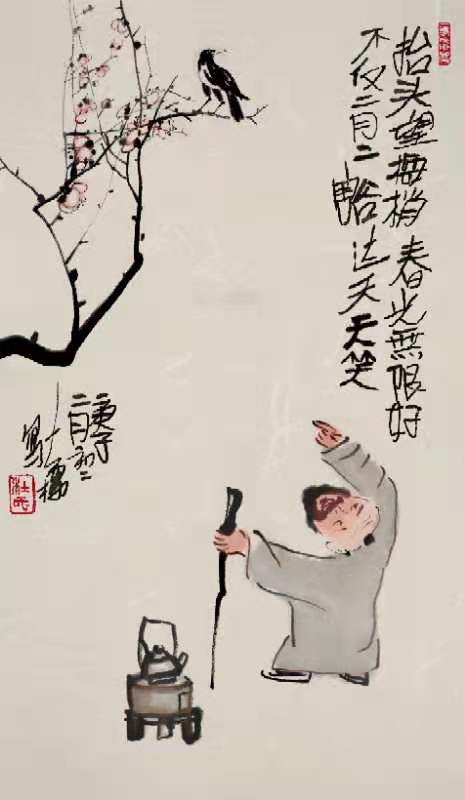 抬头望梅梢 春光無限好
不仅二月二 豁达天天笑
庚子
二月初二